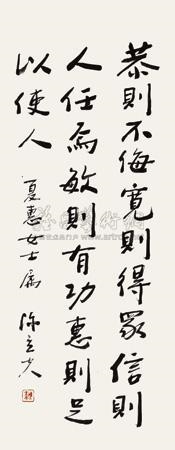 恭則不侮寬則得眾信則
人任焉敏則有功惠則足
以使人
夏惠女士屬
陳立夫